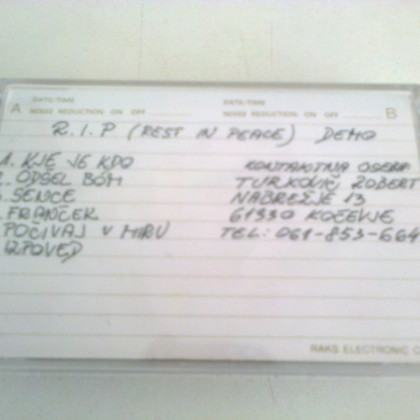 A DATE/TIME DATE/TIME B
NOISE REDUCTION ON OFF NOISE REDUCTION ON OFF
R.I.P (REST IN PEACE) DEMO
1. KJE JE KDO
2. ODŠEL BOM
3. SENCE
FRANČEK
POČIVAJ V MIRU
IZPOVED
KONTAKTNA OSEBA
TURKOVIČ ROBERT
NABREŽJE 13
61330 KOČEVJE
TEL: 061-853-664
RAKS ELECTRONIC